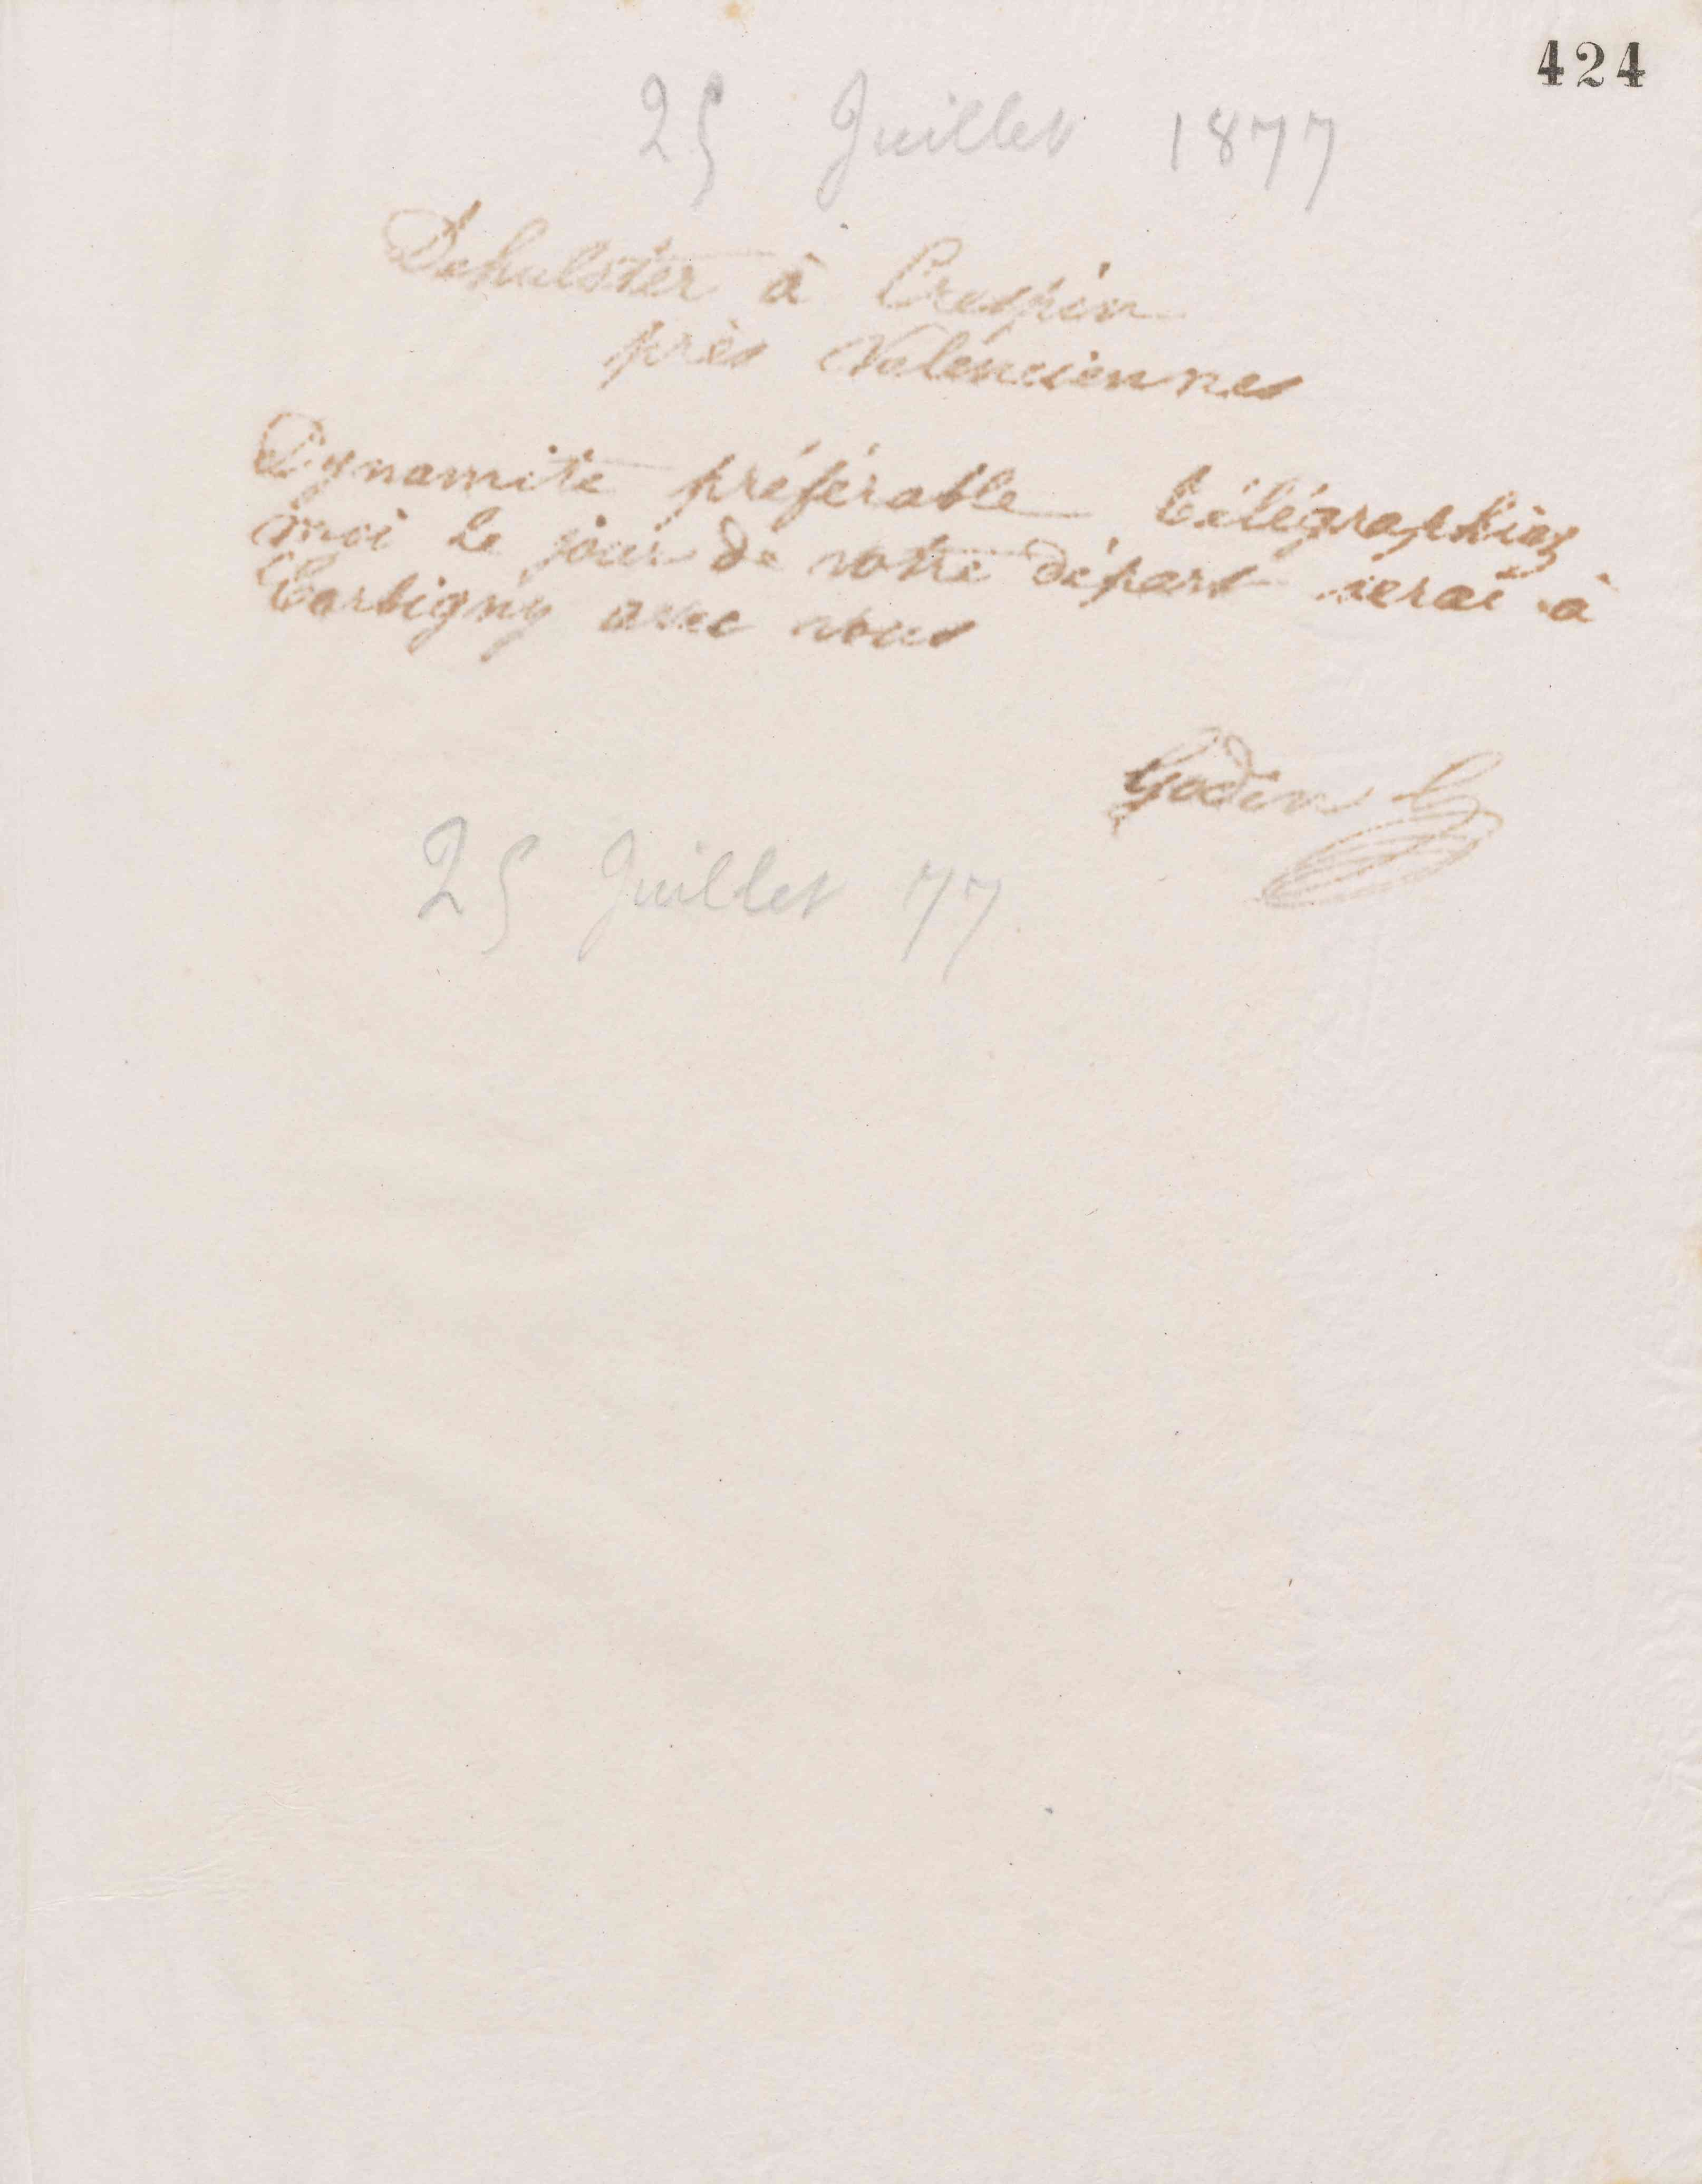 424
25 Juillet 1877
Dehulster à Crespin
près Valenciennes
Dynamite préférable télégraphiez
moi le jour de votre départ serai à
Corbigny avec vous
Godin
25 Juillet 77